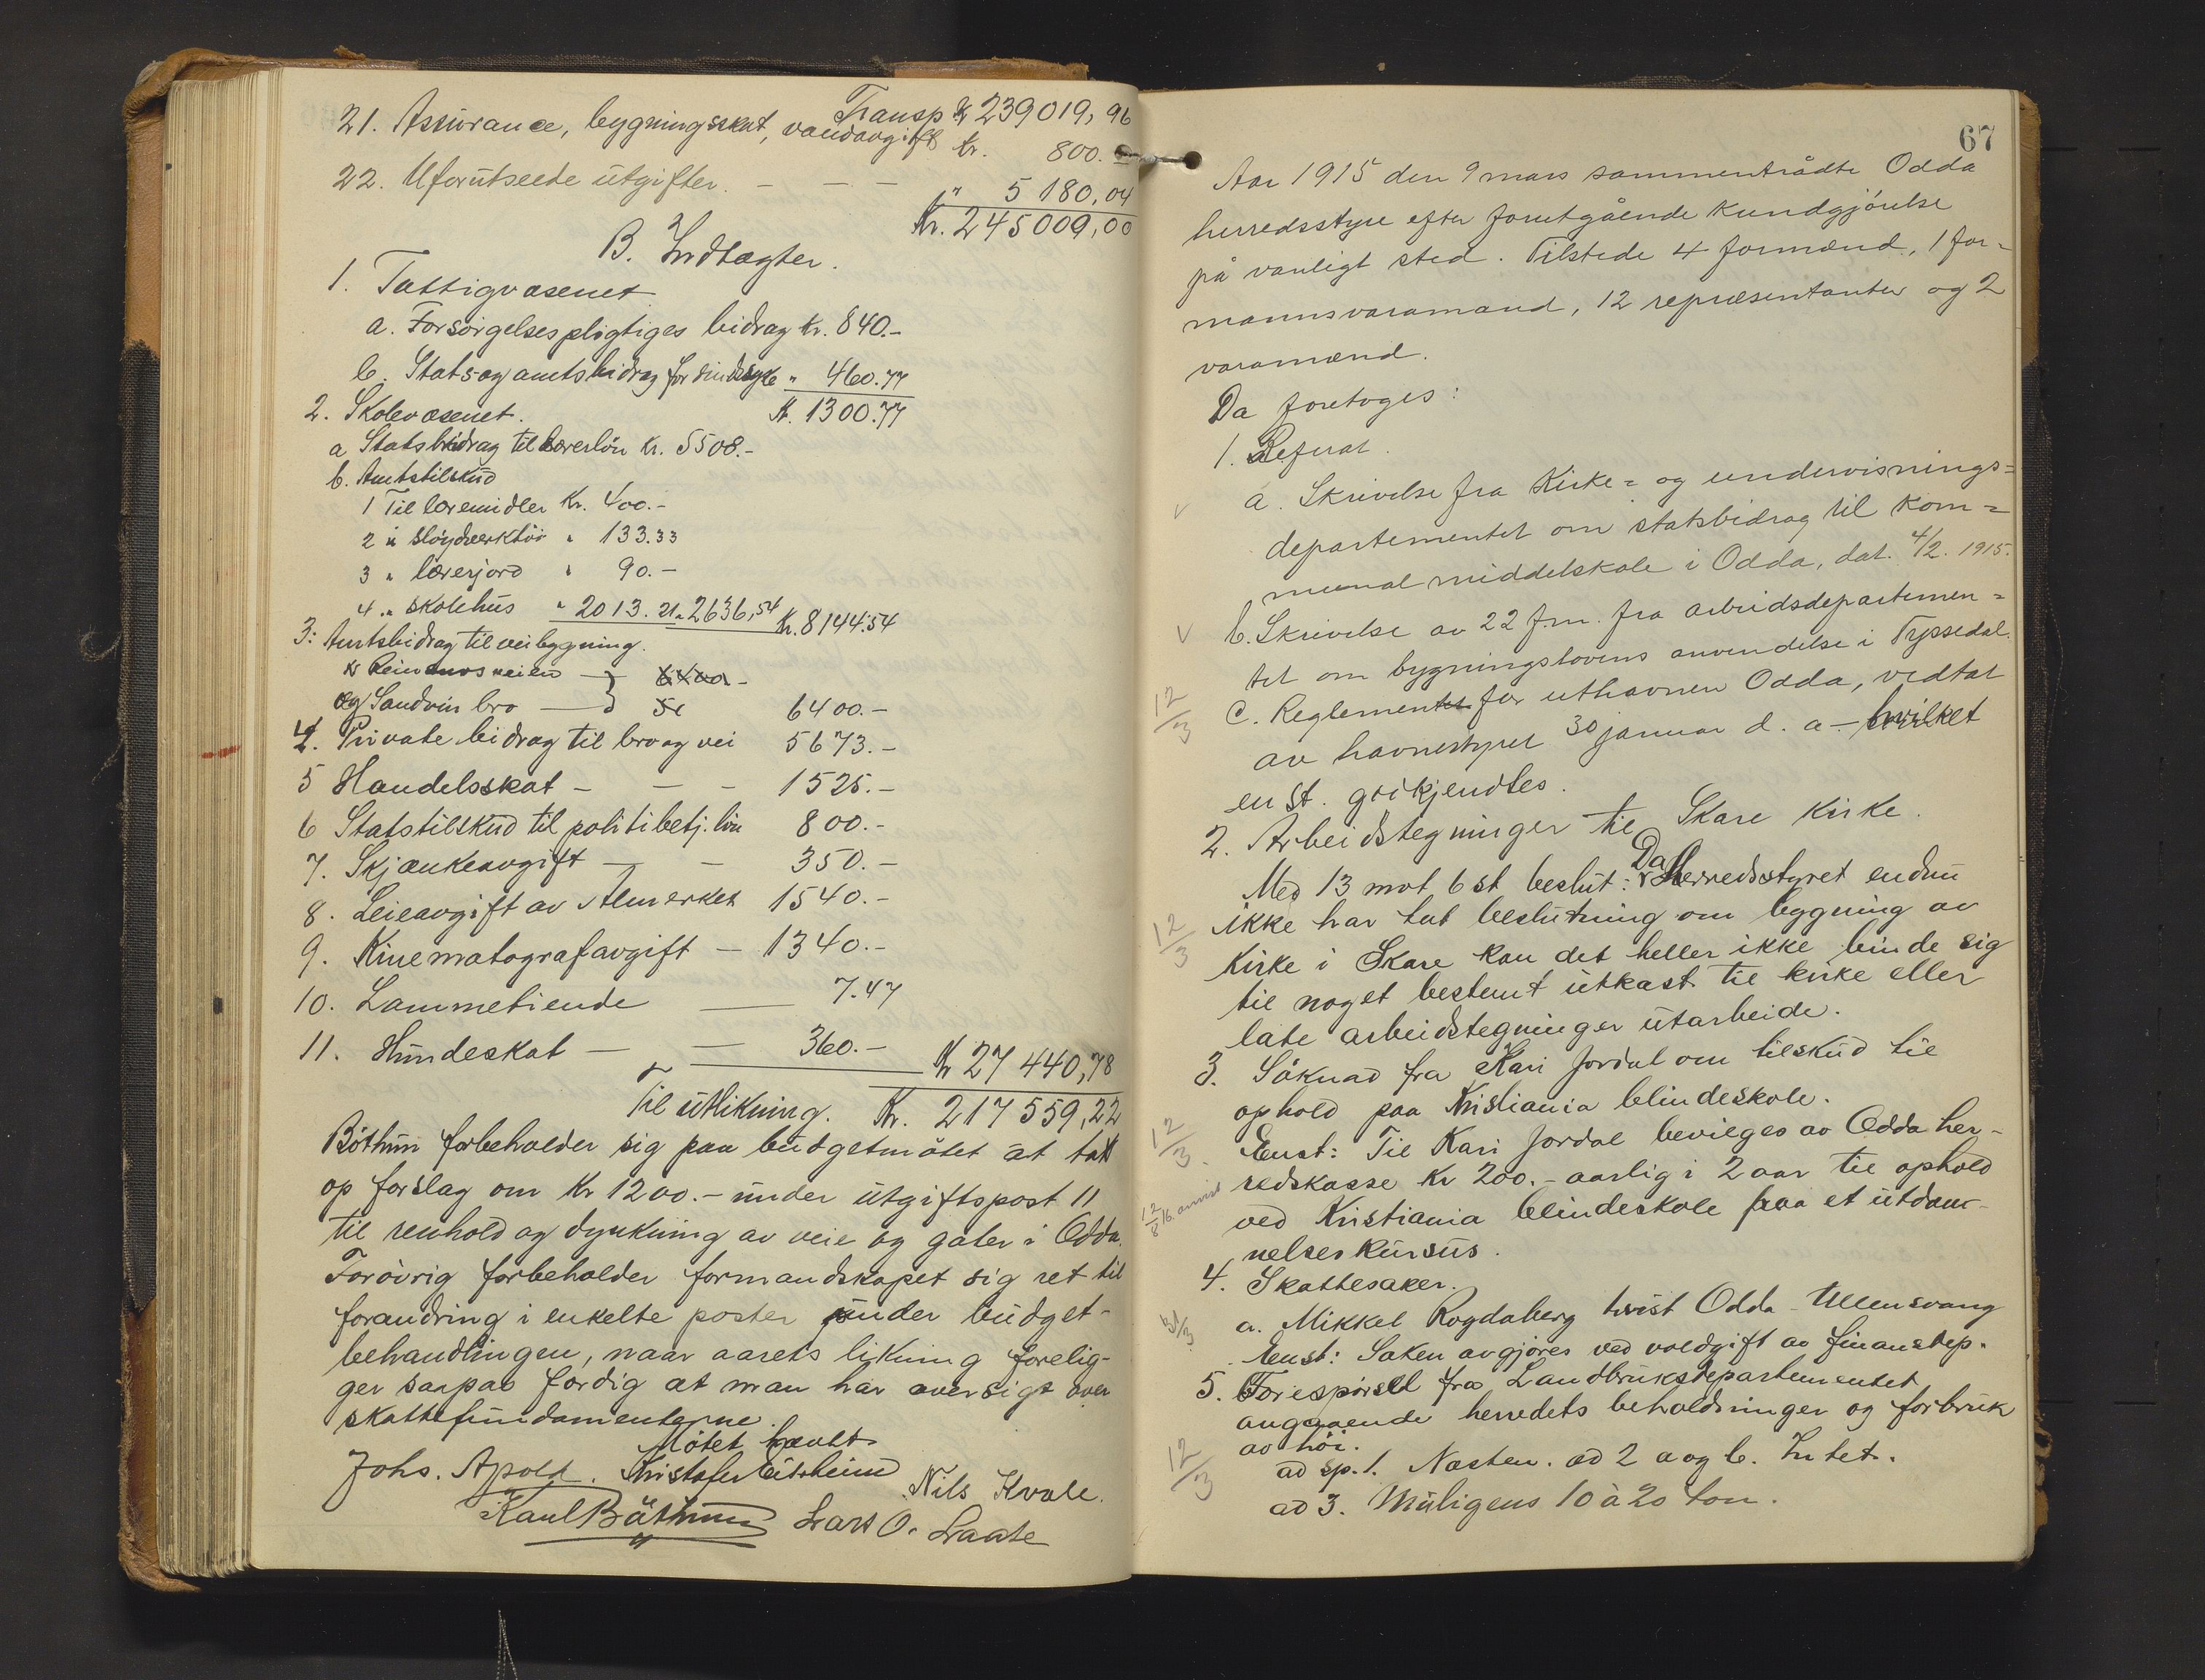 Transp Kr 239019,96
21. Assurance, bygningsskat, vandavgift kr. 800.
22. Uforutseede utgifter. — — — " 5 180,04
Kr. 245009,00
B. Indtægter.
1. Fattigvæsenet
a. Forsørgelsespligtiges bidrag Kr. 840.-
b. Stats og amtsbidrag for sindssyke " 460.77
Kr. 1300.77
2. Skolevæsenet.
a Statsbidrag til lærerløn Kr. 5508.-
b. Amtstilskud
1 Til læremidler Kr. 400.-
2 " sløydverktøi " 133.33
3 " lærerjord " 90.-
4 " skolehus " 2013.21 " 2636,54 Kr. 8144.54
3: Amtsbidrag til veibygning.
Reinanosveien — 6400.-
og Sandvin bro — 6400.-
4. Private bidrag til bro og vei 5673.-
5 Handelsskat - — - 1525.-
6 Statstilskud til politibetj. løn 800.-
7. Skjænkeavgift — - 350.-
8. Leieavgift av Almerket 1540.-
9. Kinematografavgift — 1340.-
10. Lammetiende — 7.47
11. Hundeskat — — 360.- Kr 27 440,78
Til utlikning. Kr. 217 559,22
Böthun forbeholder sig paa budgetmøtet at tat
op forslag om Kr 1200.- under utgiftspost 11
til renhold og dynkning av veie og gater i Odda.
Forøvrig forbeholder formandskapet sig ret til
forandring i enkelte poster under budget-
behandlingen, naar aarets likning forelig-
ger saapas færdig at man har oversigt over
skattefundamenterne.
Møtet hævet.
Johs. Apold. Kristofer Eitrheim Nils Kvale.
Karl Bøthun Lars O. Laate
67
Aar 1915 den 9 mars sammentrådte Odda
herredsstyre efter forutgående kundgjørelse
på vanligt sted. Tilstede 4 formænd, 1 for-
mannsvaramand, 12 repræsentanter og 2
varamænd.
Da foretoges:
1. Referat.
√ a. Skrivelse fra Kirke= og undervisnings=
departementet om statsbidrag til kom=
munal middelskole i Odda, dat. 4/2. 1915.
√ b. Skrivelse av 22 f.m. fra arbeidsdepartemen=
tet om bygningslovens anvendelse i Tyssedal.
12/3 c. Reglement for uthavnen Odda, vedtat
av havnestyret 30 januar d. a. - hvilket
enst. godkjendtes.
2. Arbeidstegninger til Skare kirke.
Med 13 mot 6 st beslut: Da Herredsstyret endnu
12/3 ikke har tat beslutning om bygning av
kirke i Skare kan det heller ikke binde sig
til noget bestemt utkast til kirke eller
late arbeidstegninger utarbeide.
3. Søknad fra Kari Jordal om tilskud til
ophold paa Kristiania blindeskole.
12/3. Enst: Til Kari Jordal bevilges av Odda her-
redskasse Kr 200.- aarlig i 2 aar til ophold
12/8 16
ved Kristiania blindeskole paa et utdan-
nelseskursus.
4. Skattesaker.
a. Mikkel Rogdaberg tvist Odda - Ullensvang
Enst: Saken avgjøres ved voldgift av finansdep.
5. Forespørsel fra Landbruksdepartementet
angaaende herredets beholdninger og forbruk
av høi.
12/3 ad sp. 1. Næsten. ad 2 a og b. Intet.
ad 3. Muligens 10 à 20 ton.